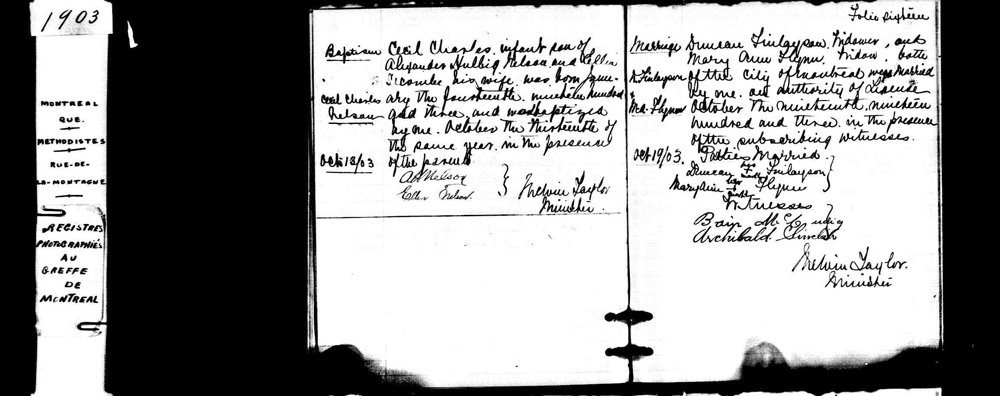 1903
MONTREAL
QUE.
METHODISTES
RUE-DE-
LA-MONTAGNE
REGISTRES
PHOTOGRAPHIÉS
AU
GREFFE
DE
MONTREAL
Baptism
Cecil Charles
Nelson
Oct 13/03
Cecil Charles, infant son of
Alexander Nelson and
Titcombe his wife was born Janu-
ary the fourteenth nineteen hundred
and three, and was baptized
by me October the thirteenth of
the same year in the presence
of the parents
Nelson
Ellen Nelson
Melvin Taylor
Minister
Folio sixteen
Marriage
D. Finlayson
&
Flynn
Oct 19/03.
Duncan Finlayson, Widower, and
Mary Ann Flynn, Widow, both
of the City of Montreal were Married
by me on authority of License
October the nineteenth nineteen
hundred and three in the presence
of the subscribing witnesses.
Parties Married
Duncan his Finlayson
Mary Ann her Flynn
Witnesses
Archibald
Melvin Taylor.
Minister